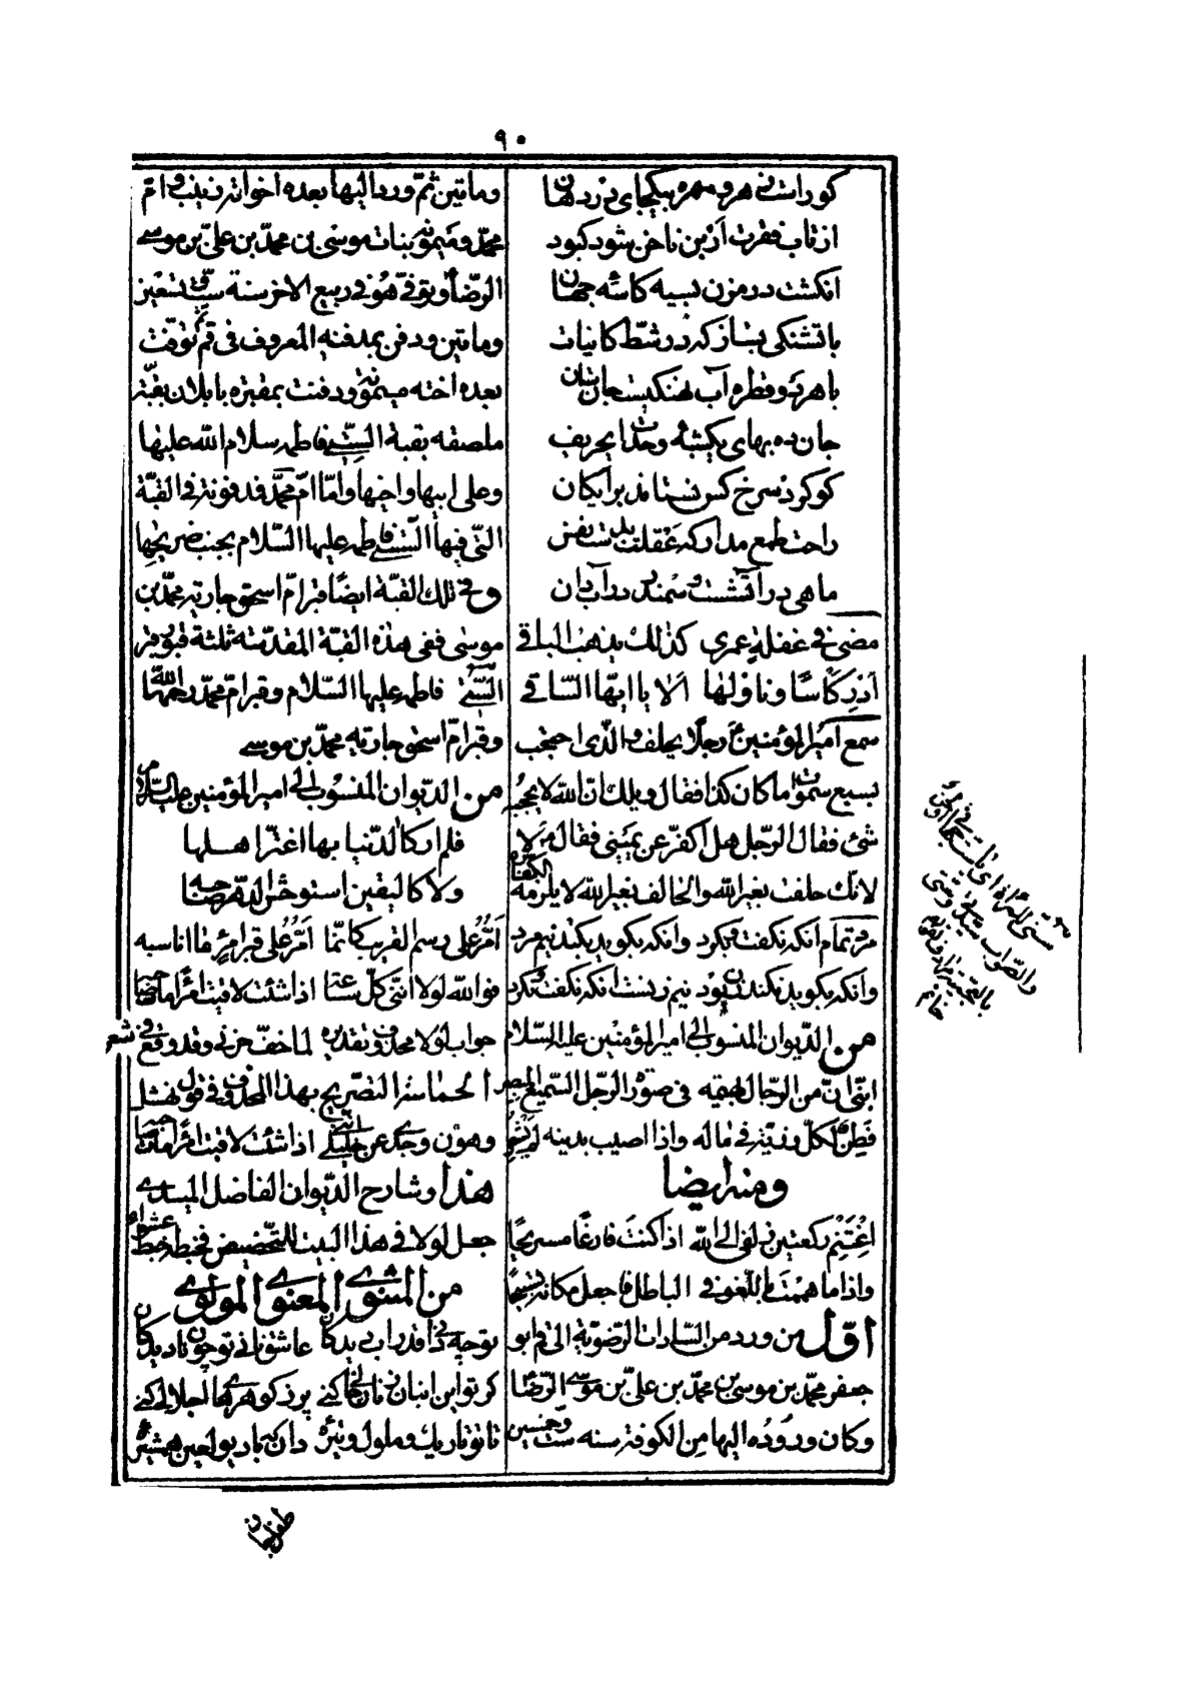 ٩٠
کو راستی هر دو مهره بیکجای نرد هان
از تاب فقرت ار بن ناخن شود کبود
انگشت در مزن بسیه کاسه جهان
با تشنگی بساز که در شط کاینات
با هر دو قطره آب نهنگیست جان ستان
جان ده بهای یکشبه وحدت ای حریف
کو گرد سرخ کس نستاند برایگان
راحت طمع مدار که غفلت نفس
ماهی در آتشست و سمندر در آبدان
مضی فی غفلة عمری كذلك يذهب الباقي
ادر كأسا وناولها ألا يا ايها الساقي
سمع امیر المؤمنین رجلا يحلف والذی احتجب
بسبع سموات ما كان كذا فقال ويلك ان الله لا يحجبه
شئ فقال الرجل هل اكفر عن يميني فقال لا
لانك حلفت بغير الله والحالف بغير الله لا يلزمه الكفارة
مرد تمام آنکه نگفت و بکرد وانکه بگوید بکند نیم مرد
وانکه بگوید نکند زن بود نیم زنست آنکه نگفت و نکرد
من الديوان المنسوب الى امير المؤمنين عليه السلام
ابنی ان من الرجال بهيمة فی صورة الرجل السميع المبصر
فطن لكل رزية فی ماله واذا اصيب بدينه لم يشعر
ومنه ايضا
اغتنم ركعتين زلفى الى الله اذا كنت فارغا مستريحا
واذا ما هممت باللغو فی الباطل فاجعل مكانه تسبيحا
اول من ورد من السادات الرضوية الى قم ابو
جعفر محمد بن موسى بن محمد بن علی بن موسى الرضا
وكان وروده اليها من الكوفة سنة ست وخمسين
ومأتين ثم ورد اليها بعده اخواته زينب وام
محمد وميمونة بنات موسى بن محمد بن علی بن موسى
الرضا وتوفی هو فی ربيع الاخر سنة ست وتسعين
ومأتين ودفن بمدفنه المعروف فی قم ثم توفت
بعده اخته ميمونة ودفنت بمقبرة بابلان بقبة
ملصقة بقبة الستی فاطمة سلام الله عليها
وعلی ابيها واخيها واما ام محمد فمدفونة فی القبة
التی فيها الستی فاطمة عليها السلام بجنب ضريحها
وفی تلك القبة ايضا قبر ام اسحق جارية محمد بن
موسى ففی هذه القبة المقدسة ثلثة قبور قبر
الستی فاطمة عليها السلام وقبر ام محمد رحمها الله
وقبر ام اسحق جارية محمد بن موسى
من الديوان المنسوب الى امير المؤمنين عليه السلام
فلم ار كالدنيا بها اغتر اهلها
ولا كاليقين استوحش الدهر صاحبه
امر على رسم القريب كانما امر على قبر امرء ما اناسبه
فوالله لولا اننی كل ساعة اذا شئت لاقيت امرأ مات صاحبه
جواب لولا محذوف تقديره لما خف حزنی وقد وقع فی شعر
الحماسة التصريح بهذا المحذوف فی قول نهشل
وهون وجدی عن خليلی اننی اذا شئت لاقيت امرأ مات صاحبه
هذا وشارح الديوان الفاضل الميبدی
جعل لولا فی هذا البيت للتحضيض فخبط خبط عشواء
من المثنوی المعنوی المولوی
کر تو این انبان ز نان خالی کنی پر ز گوهرهای اجلالی کنی
تا تو تاریک و ملول و تیره دان که با دیو لعین همشیره
طفل جان